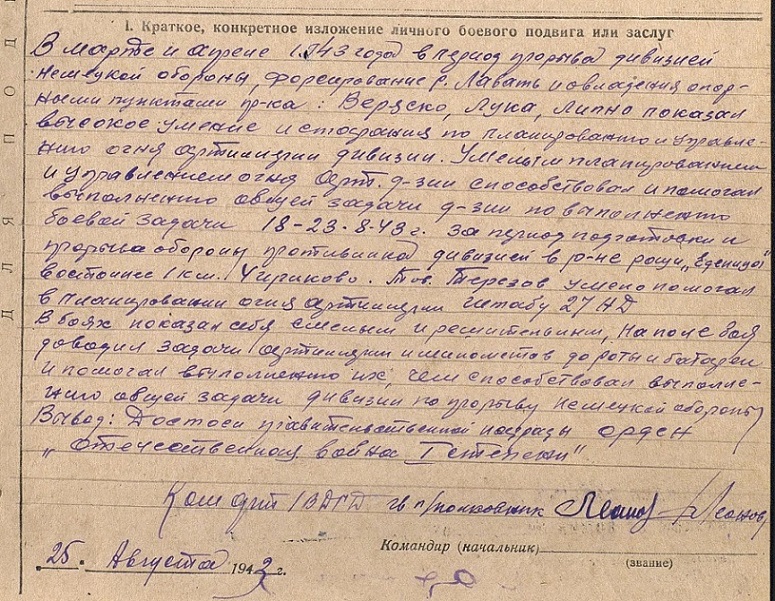 I. Краткое, конкретное изложение личного боевого подвига или заслуг
В марте и апреле 1943 года в период прорыва дивизией
немецкой обороны, форсирование р. Лавать и овладения опор-
ными пунктами пр-ка: Веряско, Лука, Липно показал
высокое умение и старания по планированию и управле-
нию огня артиллерии дивизии. Умелым планированием
и управлением огня арт. д-зии способствовал и помогал
выполнению общей задачи д-зии по выполнению
боевой задачи 18-23.8.43 г. за период подготовки и
прорыва обороны противника дивизией в р-не рощи „Еденица"
восточнее 1 км. Чириково. Тов. Терезов умело помогал
в планировании огня артиллерии штабу 27 НД
В боях показал себя смелым и решительным, на поле боя
доводил задачи артиллерии и минометов до роты и батареи
и помогал выполнению их, чем способствовал выполне-
нию общей задачи дивизии по прорыву немецкой обороны
Вывод: Достоен правительственной награды орден
„Отечественная война I степени".
Ком арт 1ВДГД гв п/полковник Леонов
Командир (начальник)
(звание)
25. Августа 1943 г.
ДЛЯ ПОД